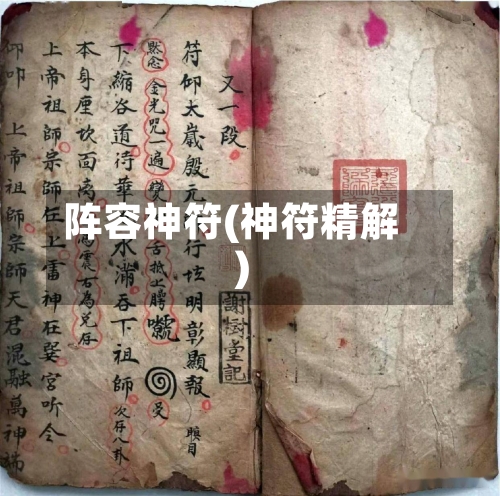 阵容神符(神符精解
)
又一段
符仰太歲殷元
行垃明彰顯報
瞋目
默念
金光咒一遍
變
舌抵上腭
受
下縮各道
水滿吞下祖師
次存八卦
本身座坎面離
為震右為兑存
上帝祖師宗師在上雷神在巽宮听令
仰叩
上帝祖師宗師天君混融萬神
謝樹堂記